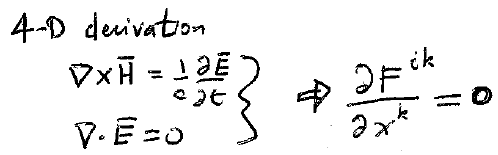 4-D derivation
∇×H̄ = 1/c ∂Ē/∂t } ⇒ ∂F^{ik}/∂x^k = 0
∇·Ē = 0